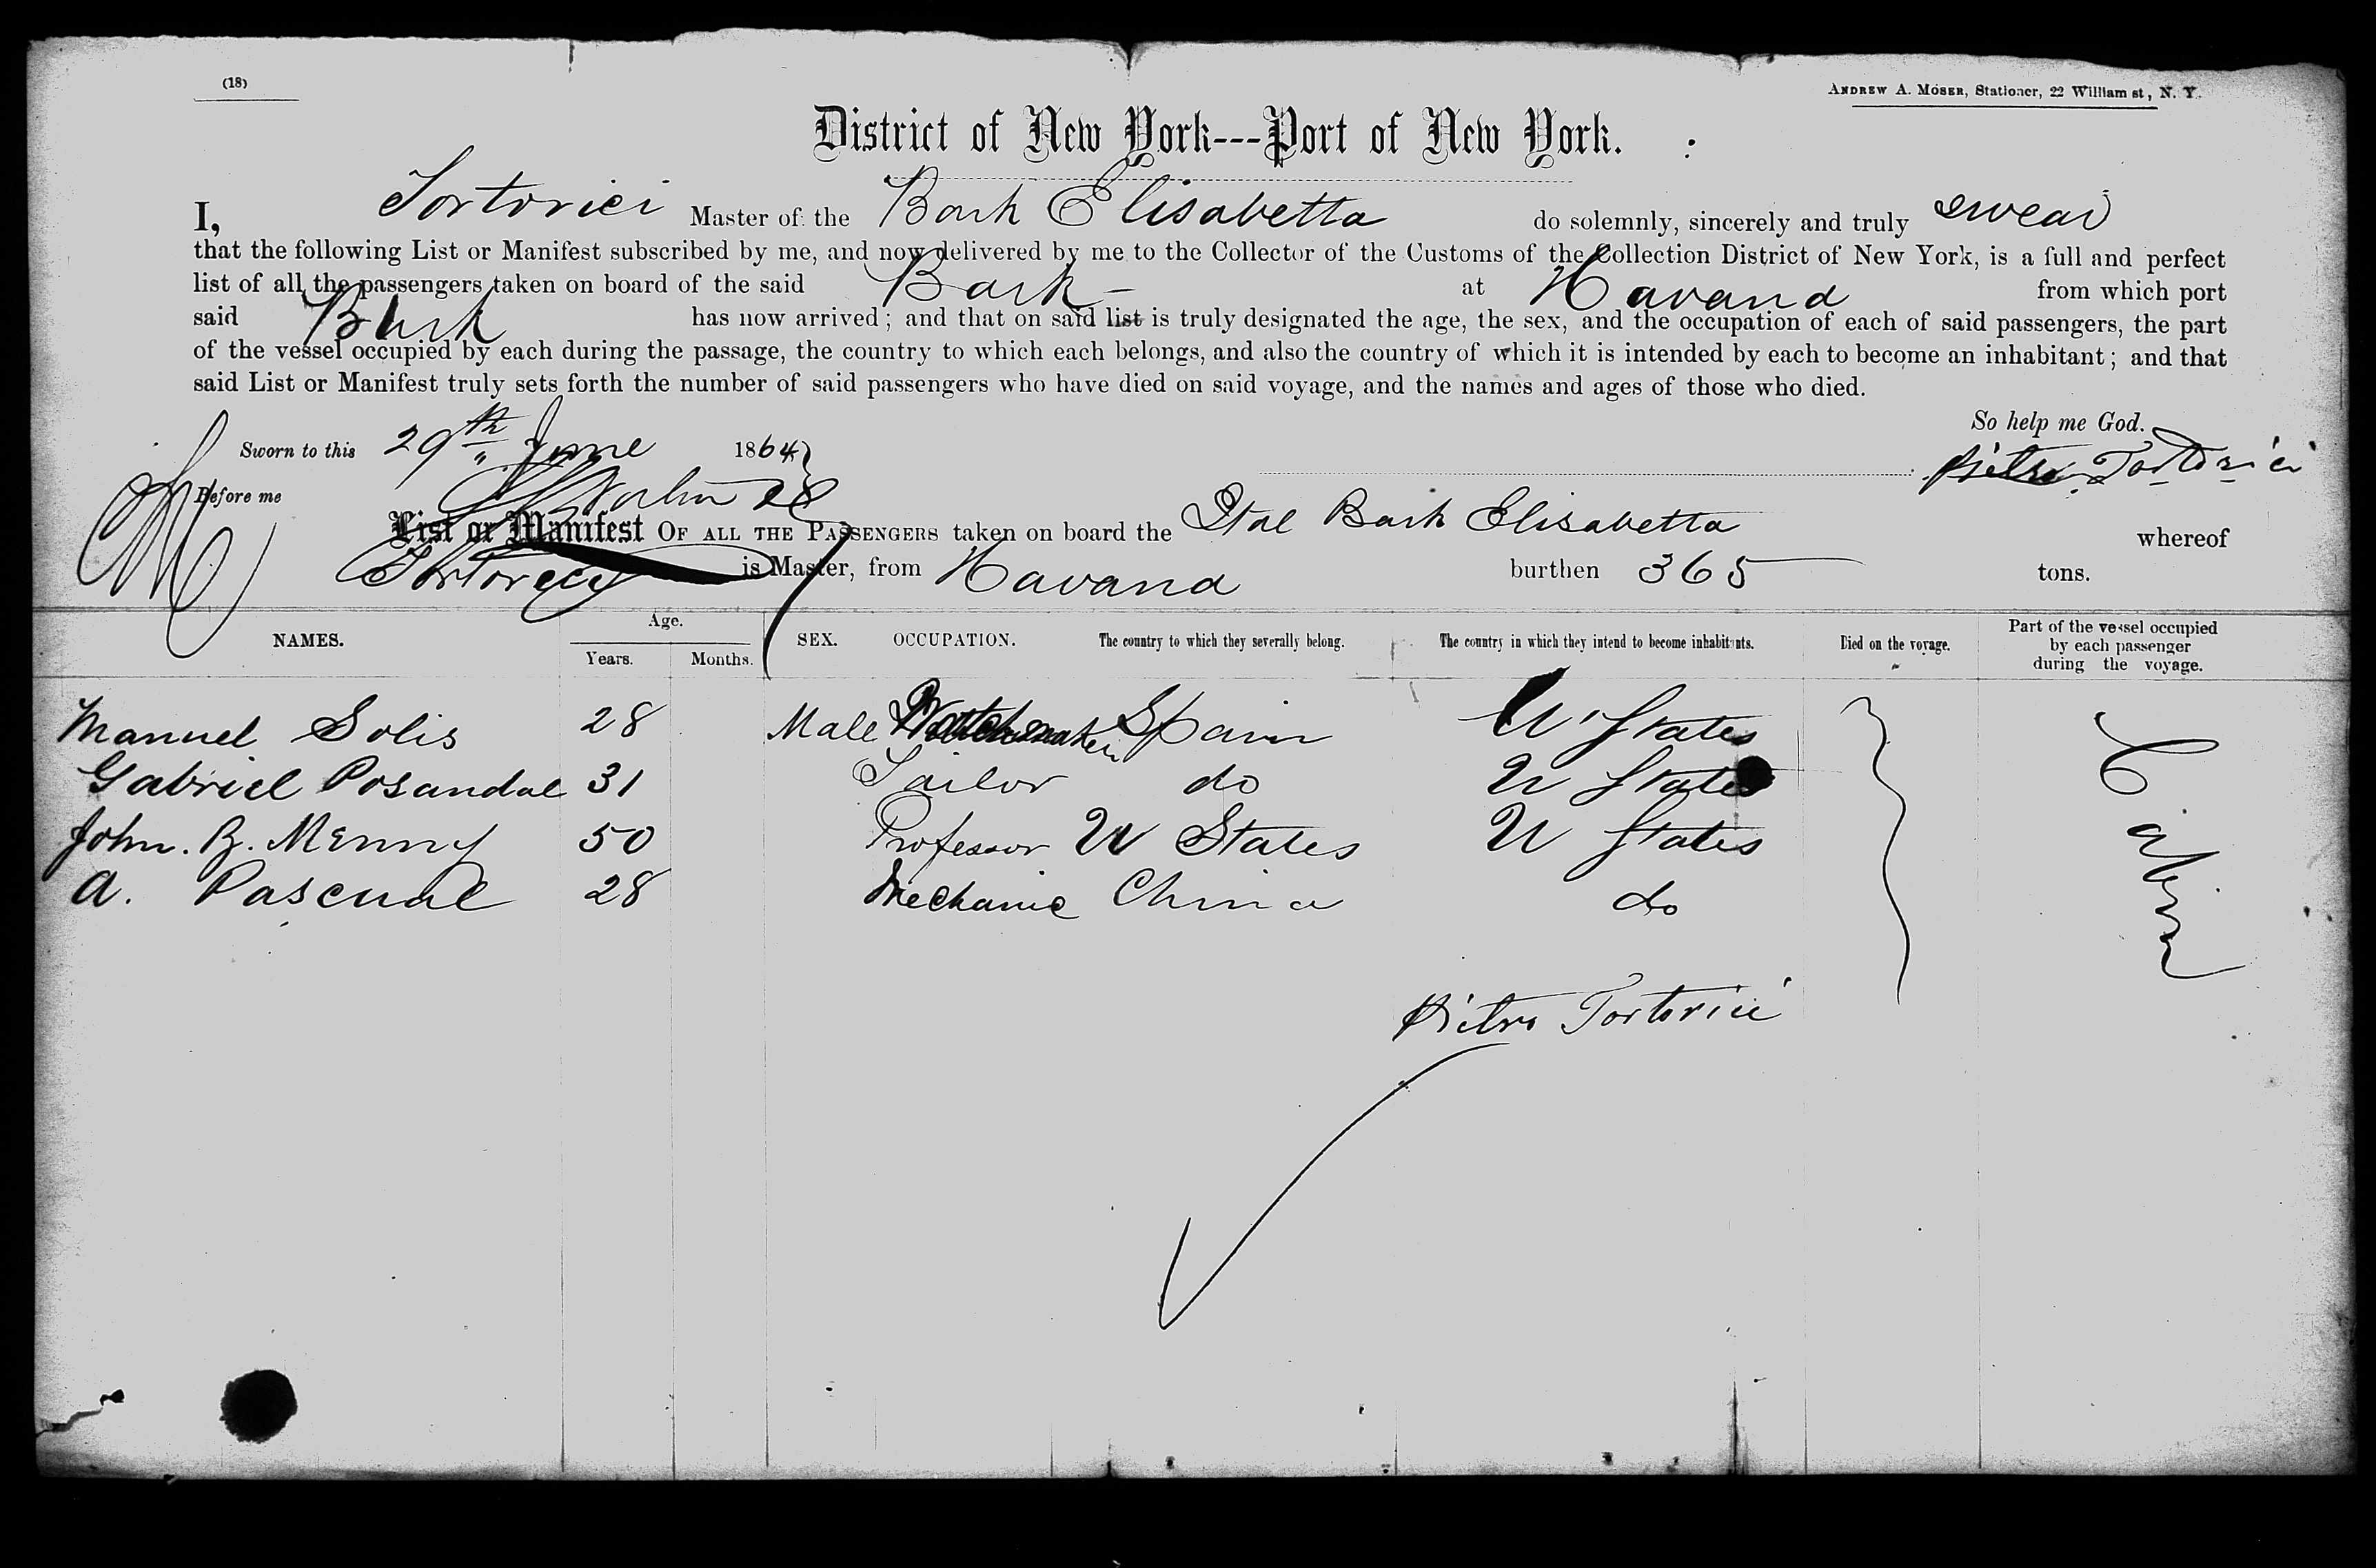 (18)
ANDREW A. MOSER, Stationer, 22 William st, N. Y.
District of New York---Port of New York.
I, Tortorici Master of the Bark Elisabetta do solemnly, sincerely and truly swear
that the following List or Manifest subscribed by me, and now delivered by me to the Collector of the Customs of the Collection District of New York, is a full and perfect
list of all the passengers taken on board of the said Bark at Havana from which port
said Bark has now arrived; and that on said list is truly designated the age, the sex, and the occupation of each of said passengers, the part
of the vessel occupied by each during the passage, the country to which each belongs, and also the country of which it is intended by each to become an inhabitant; and that
said List or Manifest truly sets forth the number of said passengers who have died on said voyage, and the names and ages of those who died.
So help me God.
Sworn to this 29th June 1864
Pietro Tortorici
Before me
List or Manifest OF ALL THE PASSENGERS taken on board the Ital Bark Elisabetta whereof
Tortorici is Master, from Havana burthen 365 tons.
NAMES. Age. Years. Months. SEX. OCCUPATION. The country to which they severally belong. The country in which they intend to become inhabitants. Died on the voyage. Part of the vessel occupied by each passenger during the voyage.
Manuel Solis 28 Male Watchmaker Spain U States
Gabriel Posandal 31 Tailor do U States
John. B. Menny 50 Professor U States U States
A. Pascual 28 Mechanic China do
Cabin
Pietro Tortorici